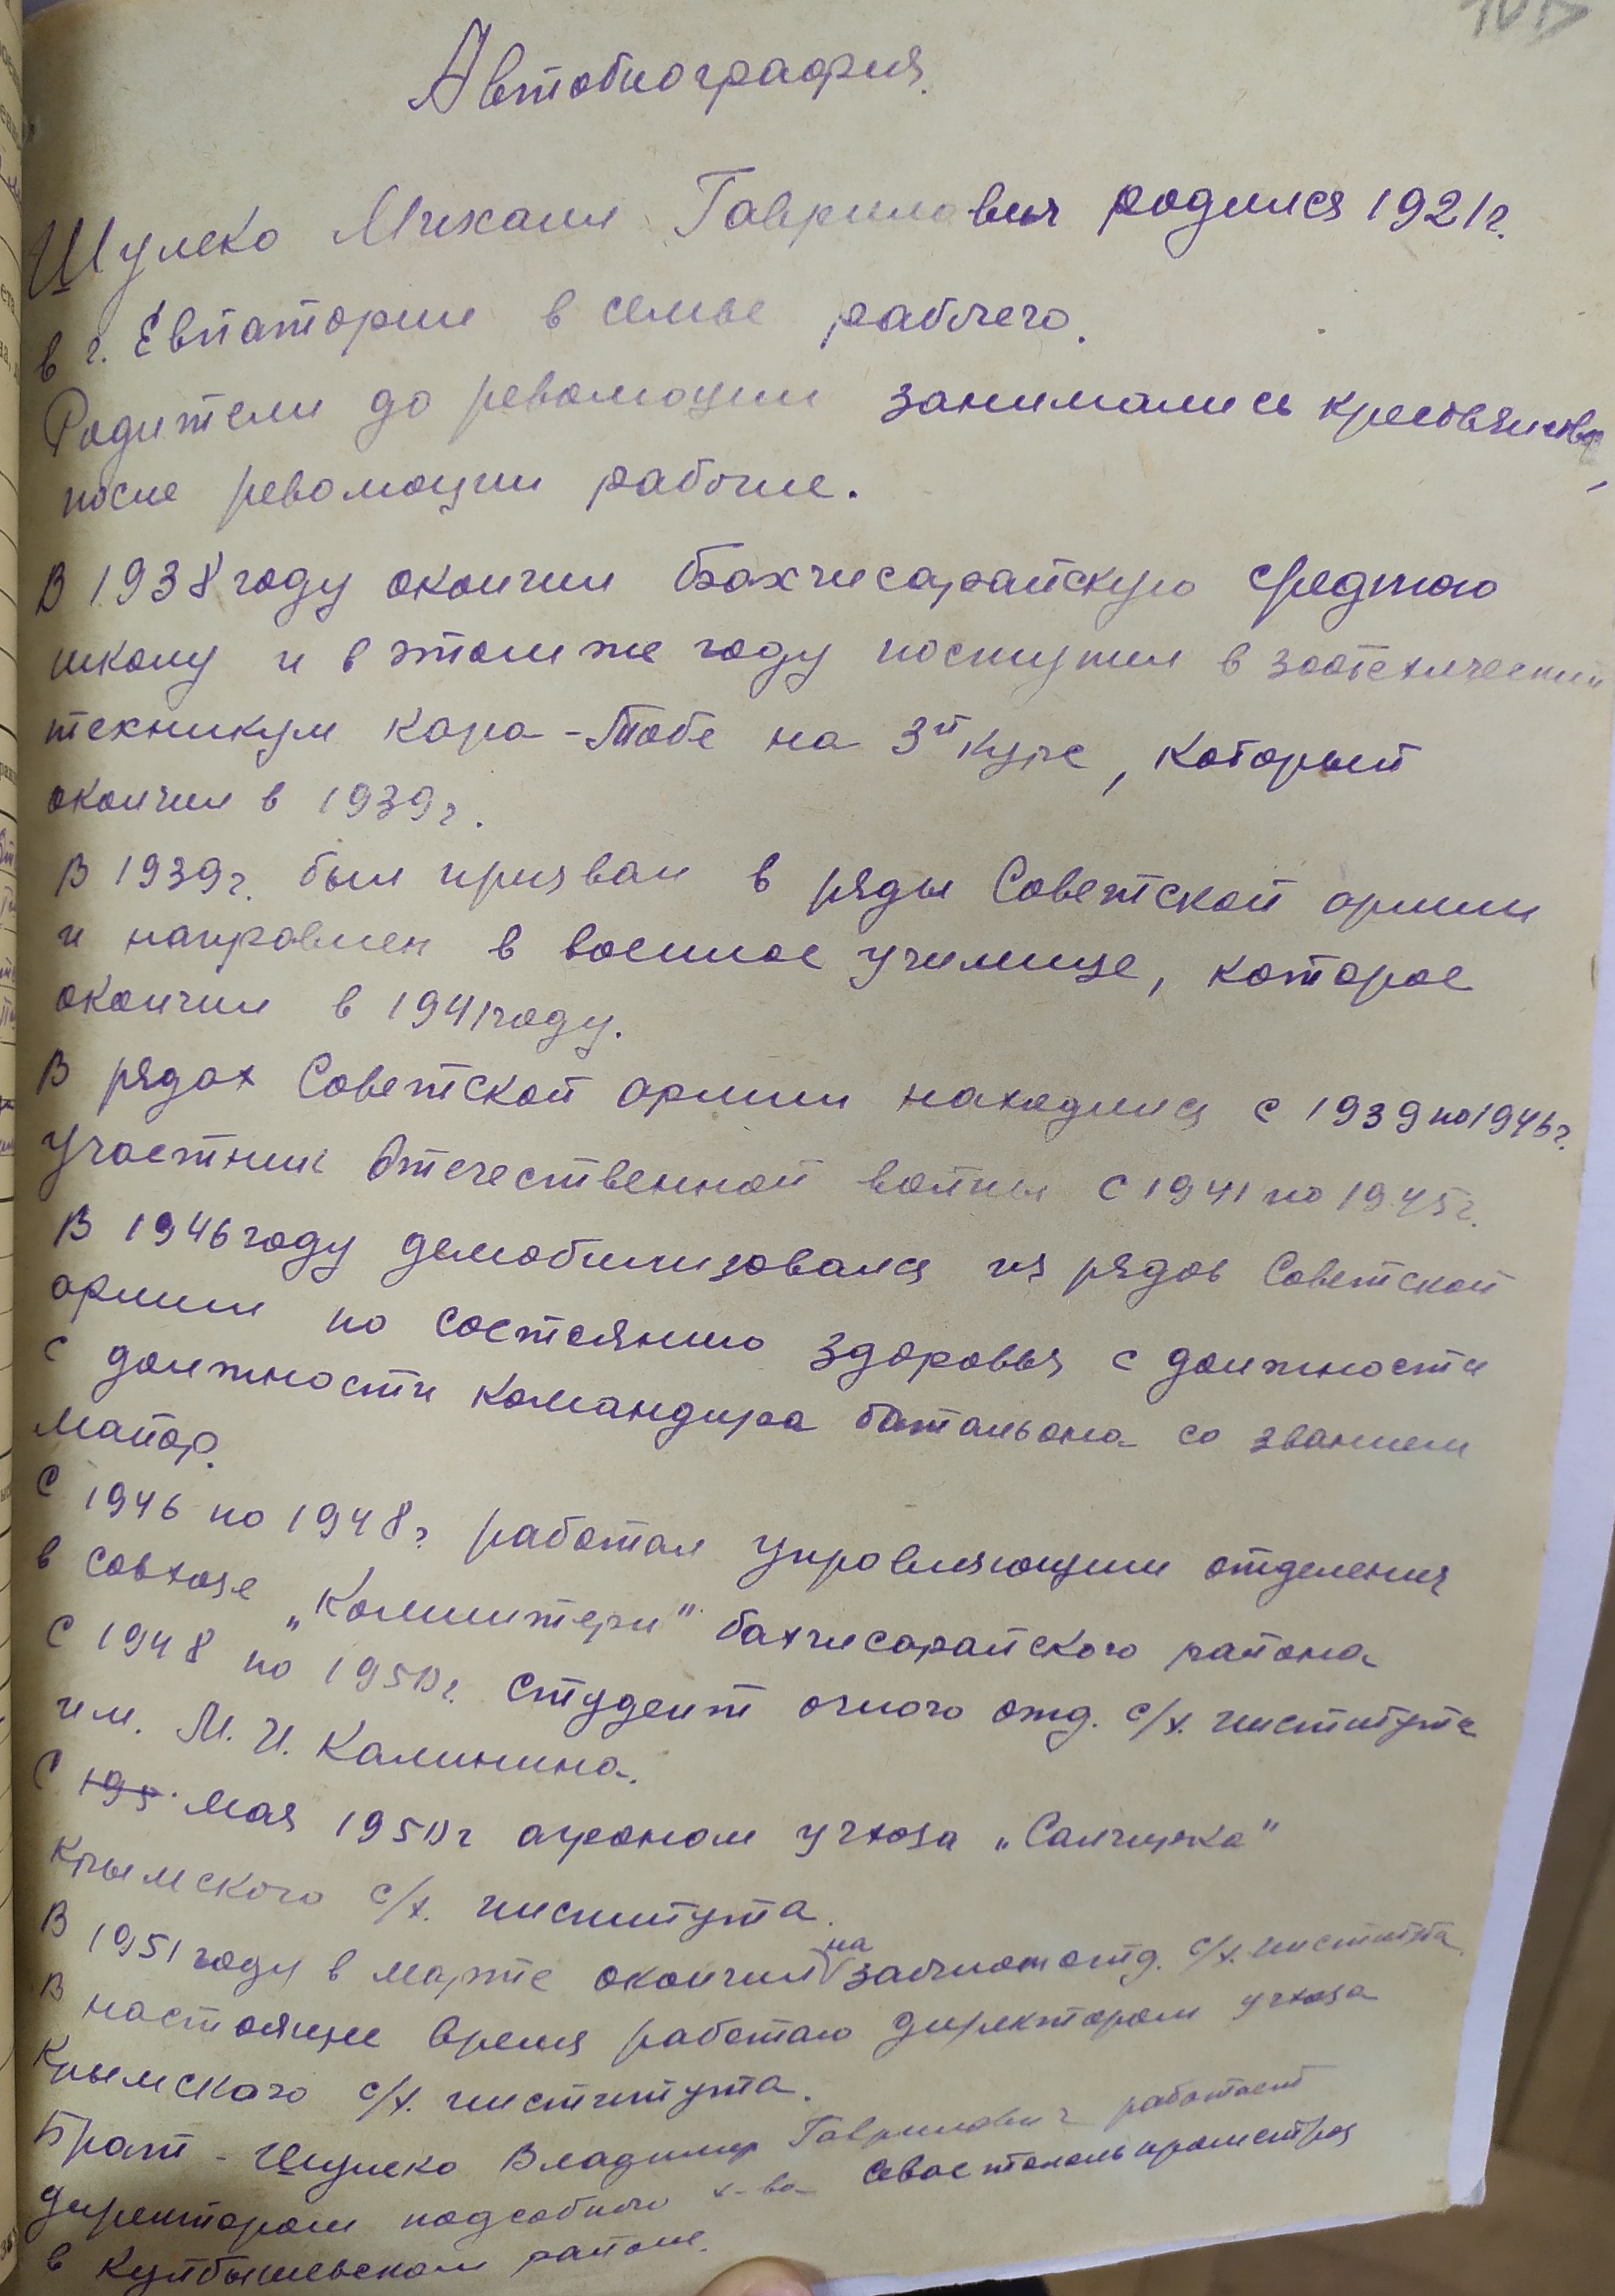 Автобиография.
Шулеко Михаил Гаврилович родился 1921г.
в г. Евпатории в семье рабочего.
Родители до революции занимались крестьянством,
после революции рабочие.
В 1938 году окончил Бахчисарайскую среднюю
школу и в этом же году поступил в зоотехнический
техникум Кара-Тобе на 3й курс, который
окончил в 1939г.
В 1939г. был призван в ряды Советской армии
и направлен в военное училище, которое
окончил в 1941году.
В рядах Советской армии находился с 1939 по 1946г.
Участник Отечественной войны с 1941 по 1945г.
В 1946году демобилизовался из рядов Советской
армии по состоянию здоровья с должности
с должности командира батальона со званием
майор.
С 1946 по 1948г работал управляющим отделения
в совхозе „Коминтерн" бахчисарайского района
С 1948 по 1950г. студент очного отд. с/х. института
им. М.И. Калинина.
С 195 мая 1950г агроном учхоза „Салгирка"
Крымского с/х. института.
В 1951году в марте окончил на заочном отд. с/х. института.
В настоящее время работаю директором учхоза
Крымского с/х. института.
Брат - Шулеко Владимир Гаврилович работает
директором подсобного х-ва Севастопольпромстроя
в Куйбышевском районе.